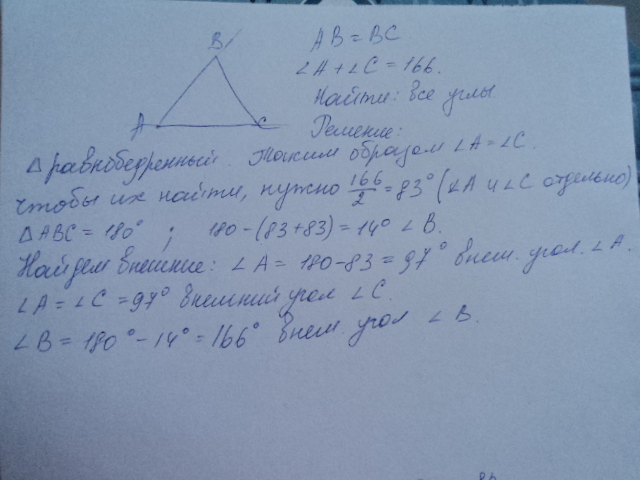 B
A
C
AB = BC
∠A+∠C = 166.
Найти: все углы
Решение:
△ равнобедренный. Таким образом ∠A = ∠C.
чтобы их найти, нужно 166/2 = 83° (∠A и ∠C отдельно)
△ABC = 180° ; 180 - (83+83) = 14° ∠B.
Найдем внешние: ∠A = 180-83 = 97° внеш. угол. ∠A.
∠A = ∠C = 97° внешний угол ∠C.
∠B = 180° - 14° = 166° внеш. угол ∠B.